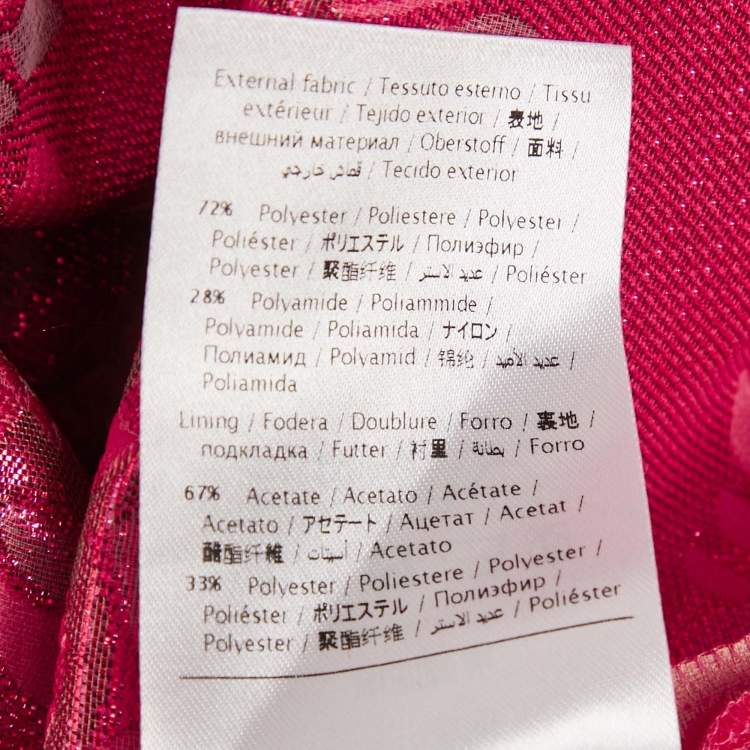 External fabric / Tessuto esterno / Tissu
extérieur / Tejido exterior / 表地 /
внешний материал / Oberstoff / 面料 /
قماش خارجي / Tecido exterior
72% Polyester / Poliestere / Polyester /
Poliéster / ポリエステル / Полиэфир /
Polyester / 聚酯纤维 / عديد الاستر / Poliéster
28% Polyamide / Poliammide /
Polyamide / Poliamida / ナイロン /
Полиамид / Polyamid / 锦纶 / عديد الأميد /
Poliamida
Lining / Fodera / Doublure / Forro / 裏地 /
подкладка / Futter / 衬里 / بطانة / Forro
67% Acetate / Acetato / Acétate /
Acetato / アセテート / Ацетат / Acetat /
醋酯纤维 / أسيتات / Acetato
33% Polyester / Poliestere / Polyester /
Poliéster / ポリエステル / Полиэфир /
Polyester / 聚酯纤维 / عديد الاستر / Poliéster